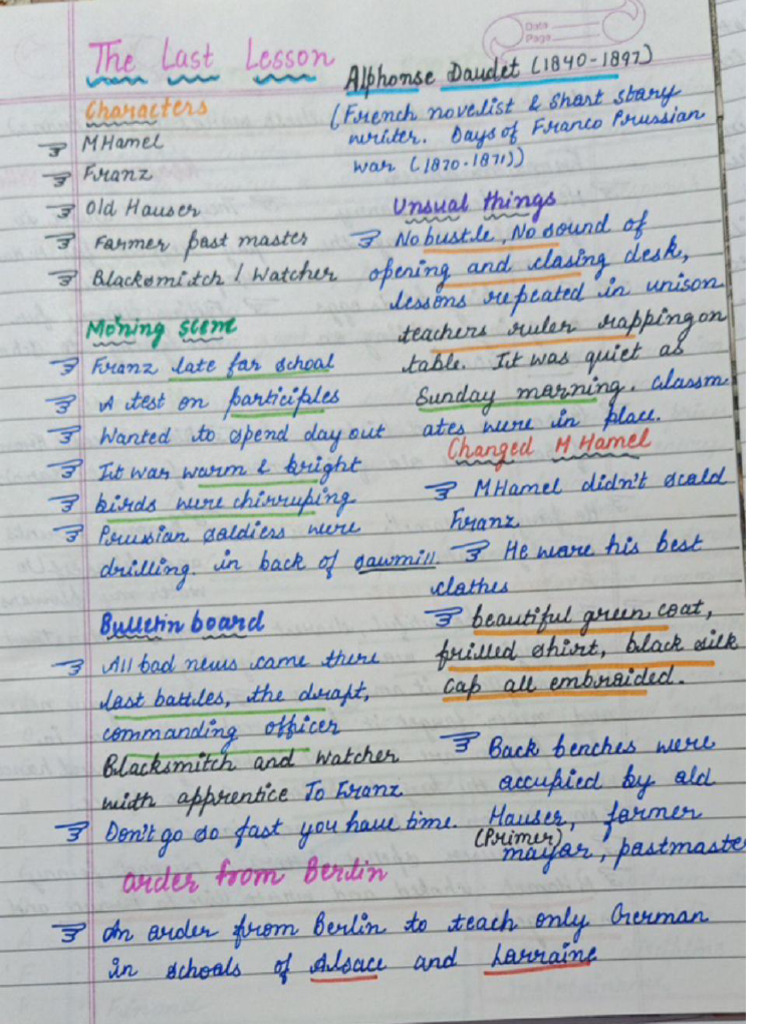 Data
Page
The Last Lesson
Characters
MHamel
Franz
Old Hauser
Farmer post master
Blacksmitch / Watcher
Moning scene
Franz late for school
A test on participles
Wanted to spend day out
It was warm & bright
birds were chirruping
Prussian soldiers were
drilling. in back of sawmill.
Bulletin board
All bad news came there
last battles, the draft,
commanding officer
Blacksmitch and watcher
with apprentice To Franz
Don't go so fast you have time.
Alphonse Daudet (1840-1897)
(French novelist & short story
writer. Days of Franco Prussian
war (1870-1871))
Unsual things
No bustle, No sound of
opening and closing desk,
lessons repeated in unison
teachers ruler rapping on
table. It was quiet as
Sunday morning. classm
ates were in place.
Changed M Hamel
MHamel didn't scold
Franz
He wore his best
clothes
beautiful green coat,
frilled shirt, black silk
cap all embroided.
Back benches were
occupied by old
Hauser, farmer
(Primer)
mayor, postmaste
order from Berlin
An order from Berlin to teach only German
in schools of Alsace and Lorraine